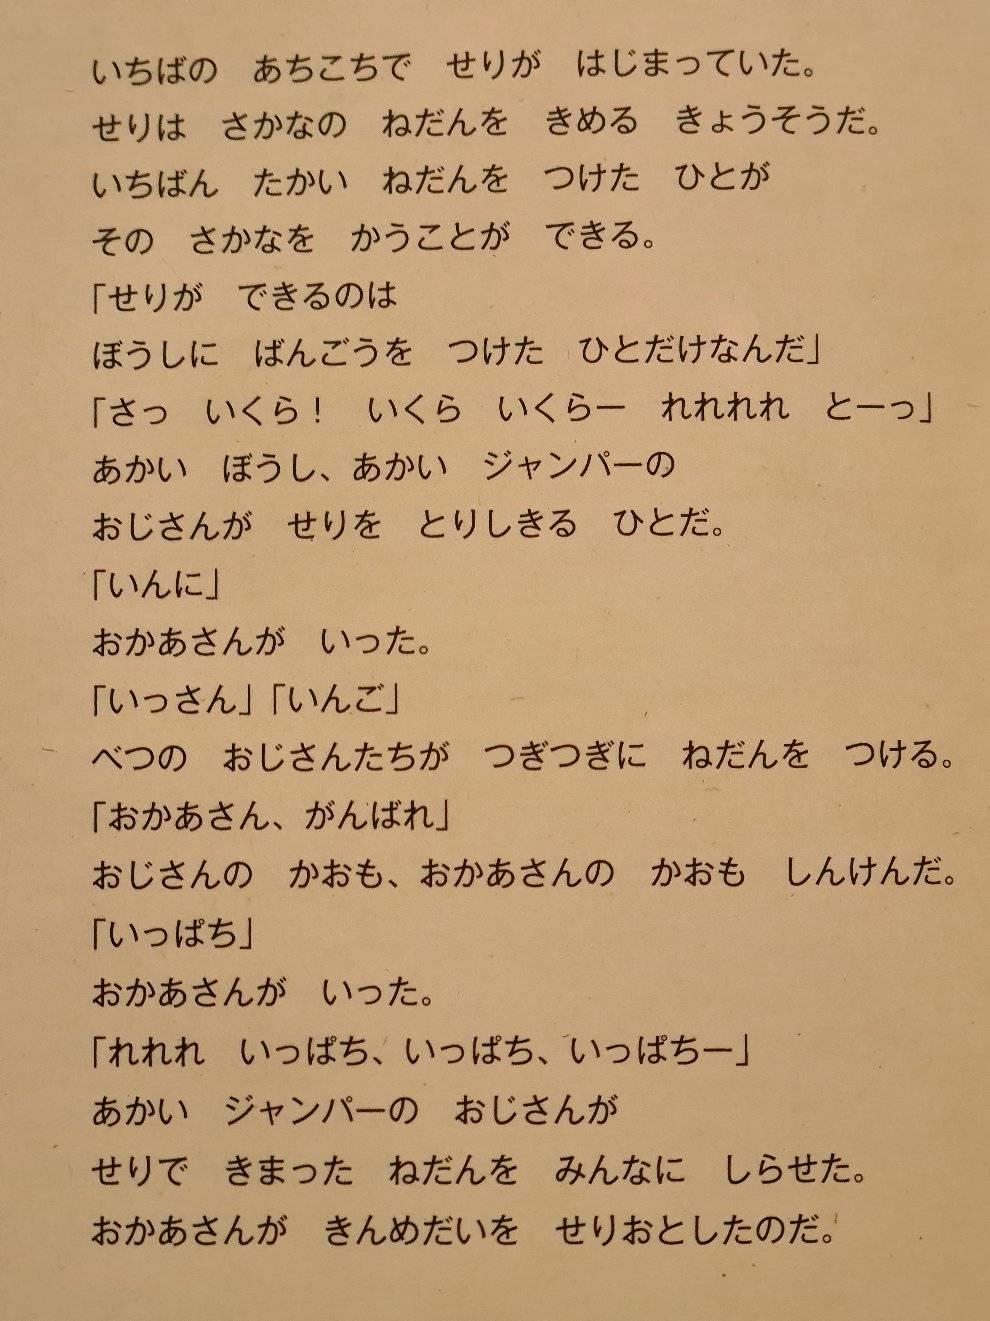 いちばの　あちこちで　せりが　はじまっていた。
せりは　さかなの　ねだんを　きめる　きょうそうだ。
いちばん　たかい　ねだんを　つけた　ひとが
その　さかなを　かうことが　できる。
「せりが　できるのは
ぼうしに　ばんごうを　つけた　ひとだけなんだ」
「さっ　いくら！　いくら　いくらー　れれれれ　とーっ」
あかい　ぼうし、あかい　ジャンパーの
おじさんが　せりを　とりしきる　ひとだ。
「いんに」
おかあさんが　いった。
「いっさん」「いんご」
べつの　おじさんたちが　つぎつぎに　ねだんを　つける。
「おかあさん、がんばれ」
おじさんの　かおも、おかあさんの　かおも　しんけんだ。
「いっぱち」
おかあさんが　いった。
「れれれ　いっぱち、いっぱち、いっぱちー」
あかい　ジャンパーの　おじさんが
せりで　きまった　ねだんを　みんなに　しらせた。
おかあさんが　きんめだいを　せりおとしたのだ。